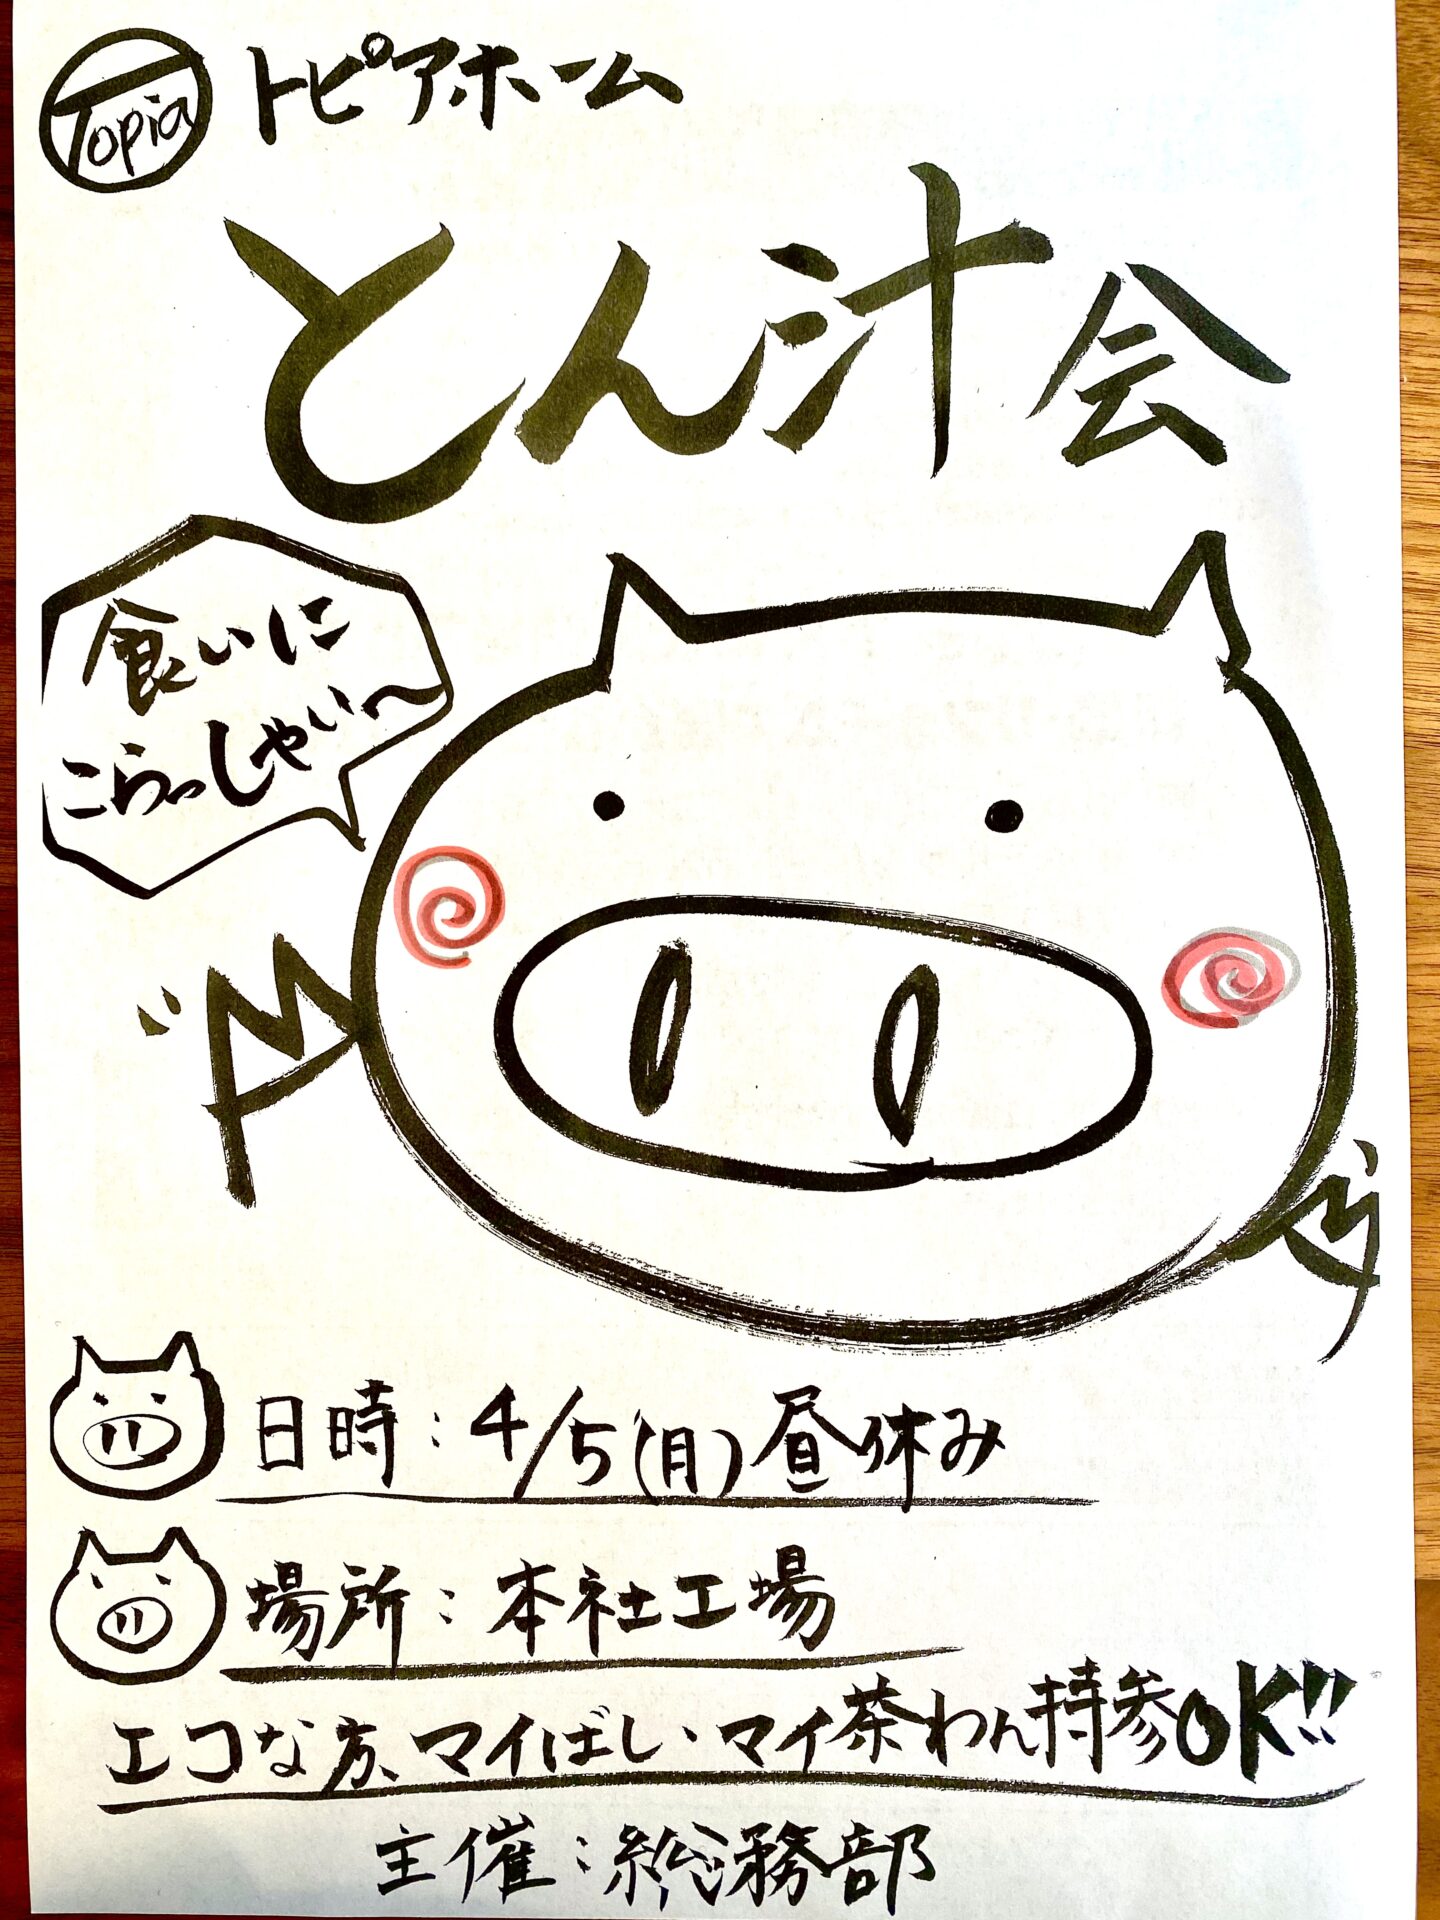 Topia トピアホーム
とん汁会
食いに
こらっしゃい〜
日時：4/5(月)昼休み
場所：本社工場
エコな方、マイばし・マイ茶わん持参OK!!
主催：総務部